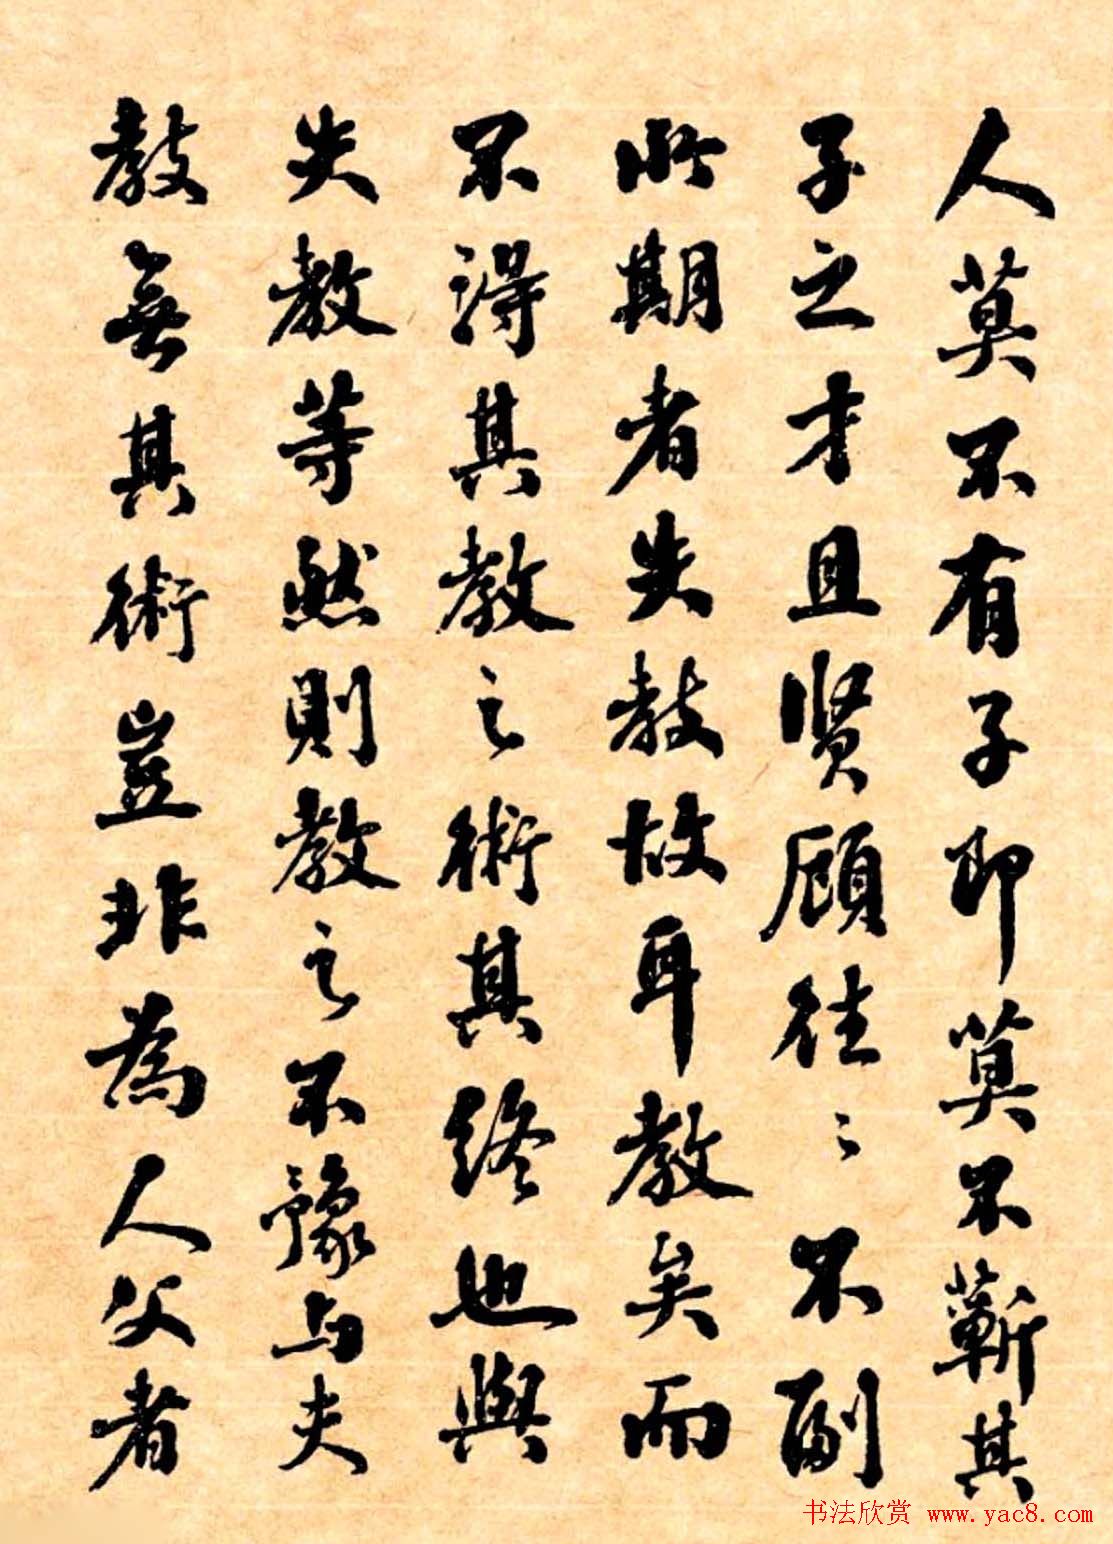 人莫不有子即莫不蘄其
子之才且贤顾往々不副
所期者失教故耳教矣而
不得其教之術其終也與
失教等然則教之不豫与夫
教無其術豈非為人父者
书法欣赏 www.yac8.com